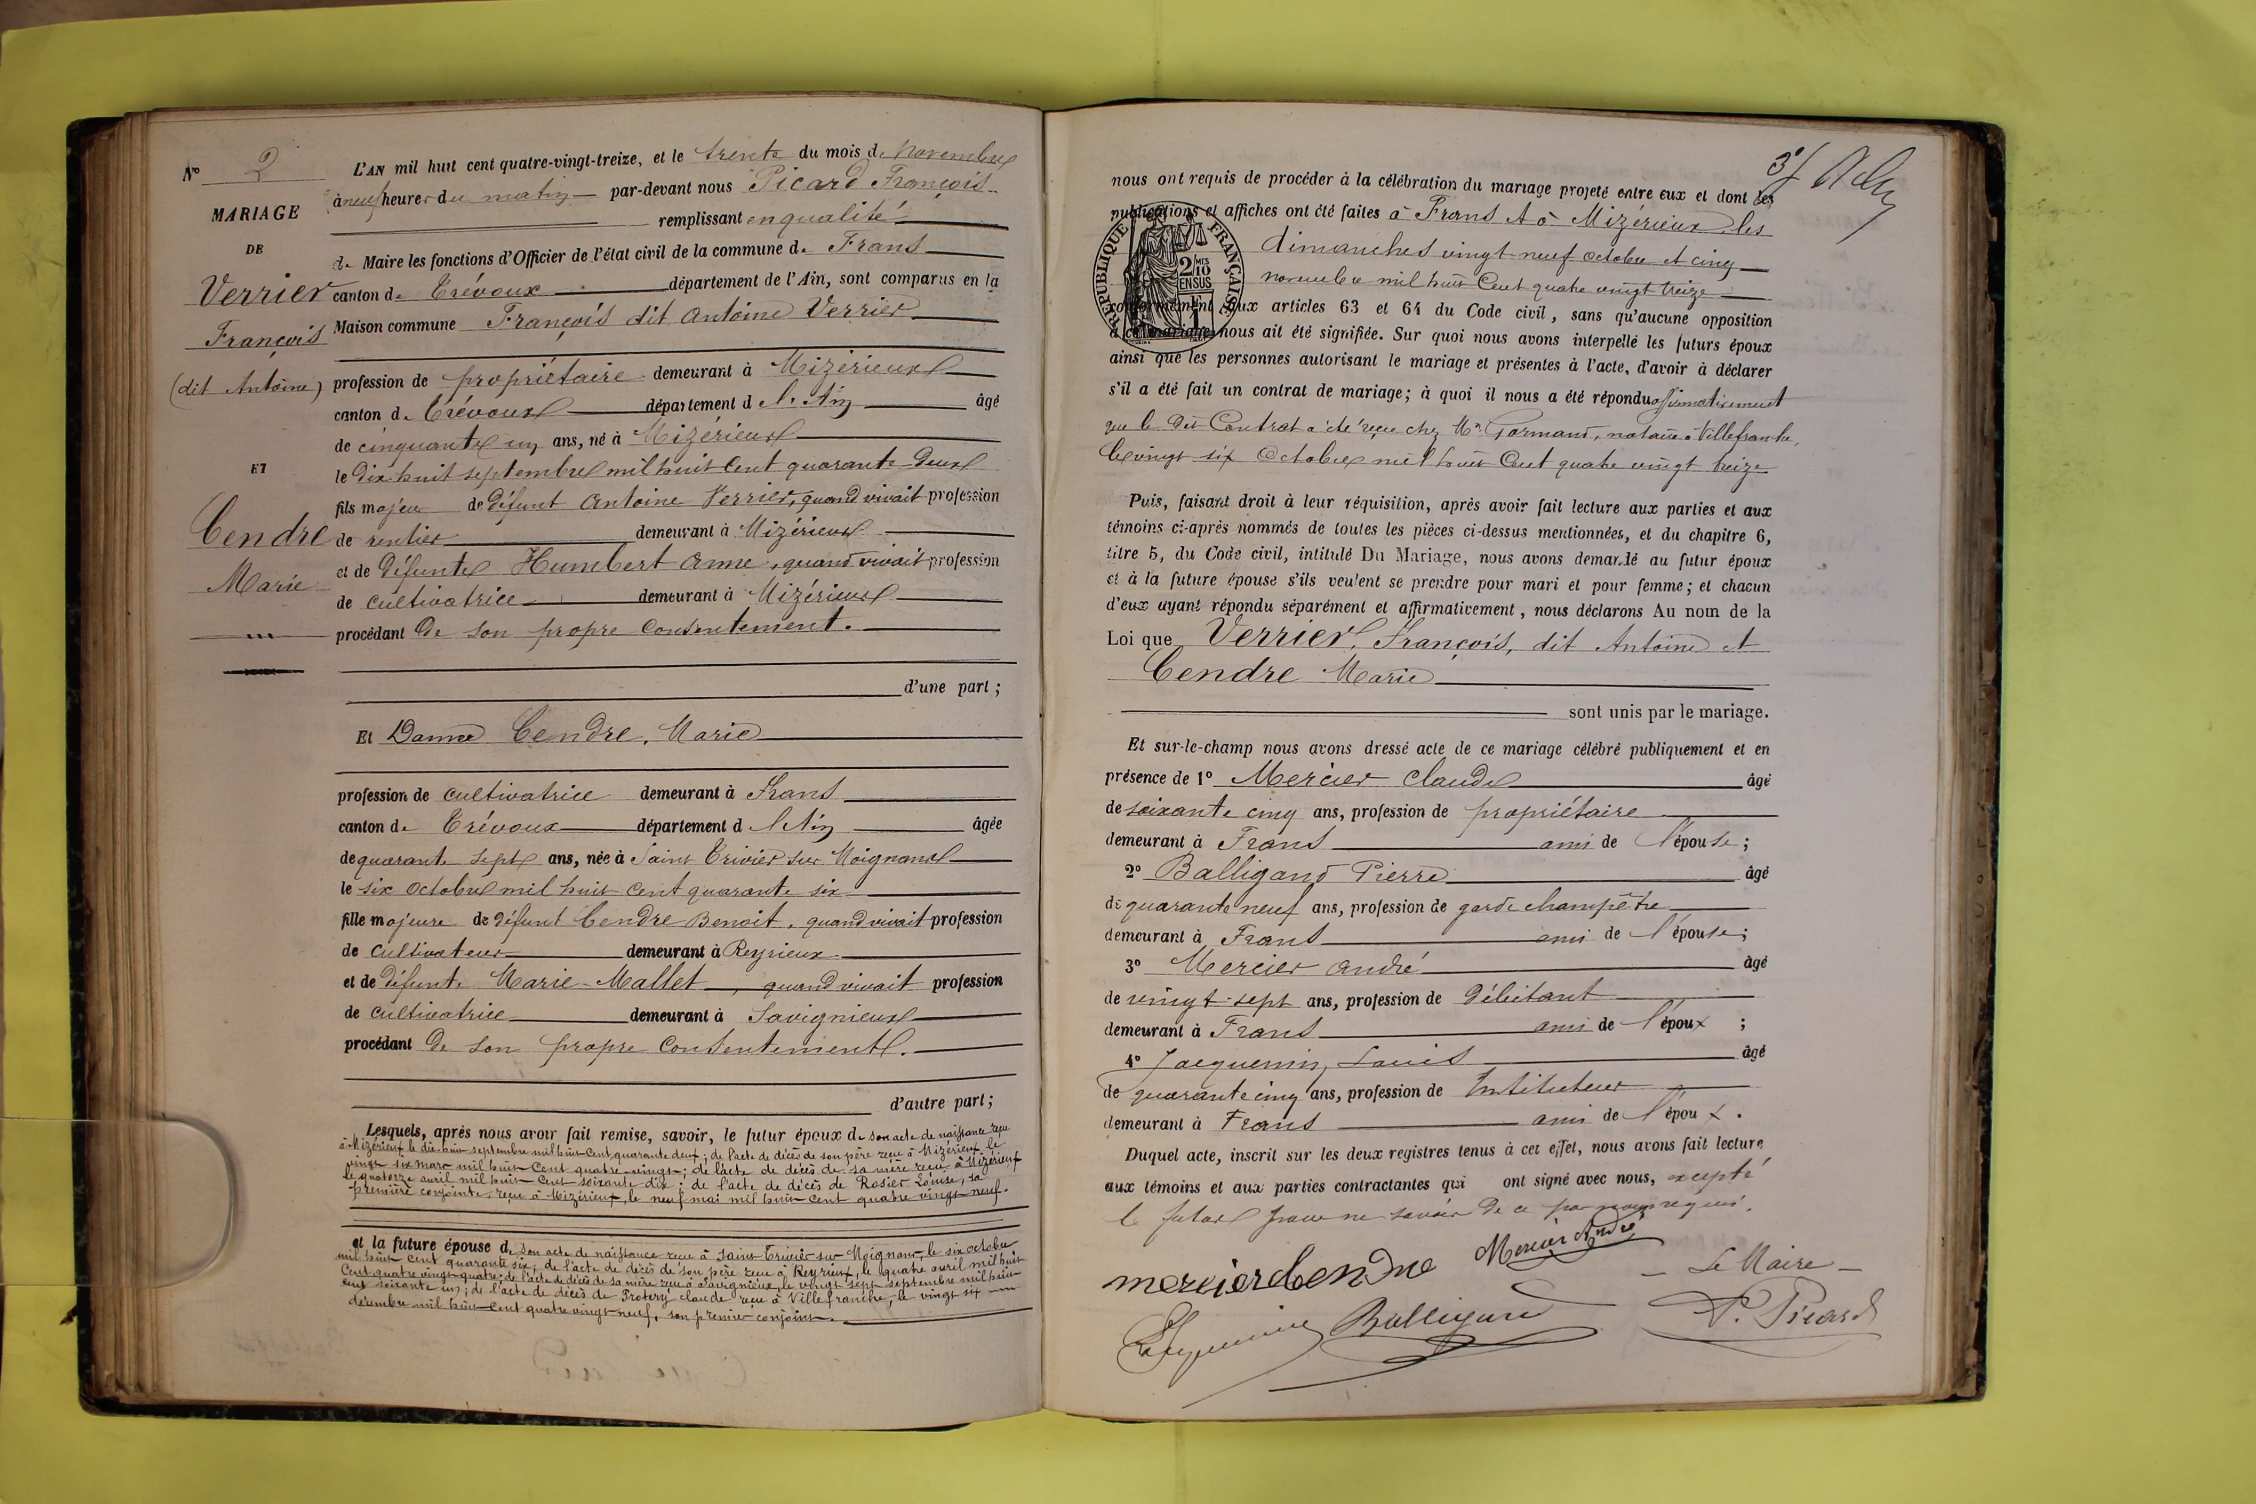 N° 2
MARIAGE
DE
Verrier
François
(dit Antoine)
ET
Cendre
Marie
L'AN mil huit cent quatre-vingt-treize, et le trente du mois de Novembre
à neuf heures du matin par-devant nous Picard François
remplissant en qualité
de Maire les fonctions d'Officier de l'état civil de la commune de Frans
canton de Trévoux département de l'Ain, sont comparus en la
Maison commune François dit Antoine Verrier
profession de propriétaire demeurant à Mizérieux
canton de Trévoux département de l'Ain âgé
de cinquante un ans, né à Mizérieux
le dix huit septembre mil huit cent quarante deux
fils majeur de défunt Antoine Verrier, quand vivait profession
de rentier demeurant à Mizérieux
et de défunte Humbert Anne, quand vivait profession
de cultivatrice demeurant à Mizérieux
procédant de son propre consentement.
d'une part;
Et Dame Cendre, Marie
profession de cultivatrice demeurant à Frans
canton de Trévoux département de l'Ain âgée
de quarante sept ans, née à Saint Trivier sur Moignans
le six octobre mil huit cent quarante six
fille majeure de défunt Cendre Benoit, quand vivait profession
de cultivateur demeurant à Reyrieux
et de défunte Marie Mallet, quand vivait profession
de cultivatrice demeurant à Savignieux
procédant de son propre consentement.
d'autre part;
Lesquels, après nous avoir fait remise, savoir, le futur époux de son acte de naissance reçu
à Mizérieux le dix huit septembre mil huit cent quarante deux; de l'acte de décès de son père reçu à Mizérieux le
vingt six mars mil huit cent quatre vingt; de l'acte de décès de sa mère reçu à Mizérieux
le quatorze avril mil huit cent soixante dix; de l'acte de décès de Rosier Louise, sa
première conjointe, reçu à Mizérieux, le neuf mai mil huit cent quatre vingt neuf.
et la future épouse de son acte de naissance reçu à Saint Trivier sur Moignans le six octobre
mil huit cent quarante six, de l'acte de décès de son père reçu à Reyrieux, le quatre avril mil huit
cent quatre vingt quatre; de l'acte de décès de sa mère reçu à Savignieux, le vingt sept septembre mil huit
cent soixante un; de l'acte de décès de Protery Claude reçu à Villefranche, le vingt six
décembre mil huit cent quatre vingt neuf, son premier conjoint.
3e f
nous ont requis de procéder à la célébration du mariage projeté entre eux et dont les
publications et affiches ont été faites à Frans et à Mizérieux les
dimanches vingt neuf octobre et cinq
novembre mil huit cent quatre vingt treize
RÉPUBLIQUE FRANÇAISE
2/10 EN SUS
conformément aux articles 63 et 64 du Code civil, sans qu'aucune opposition
à ce mariage nous ait été signifiée. Sur quoi nous avons interpellé les futurs époux
ainsi que les personnes autorisant le mariage et présentes à l'acte, d'avoir à déclarer
s'il a été fait un contrat de mariage; à quoi il nous a été répondu affirmativement
que le dit Contrat a été reçu chez Mr Tormand, notaire à Villefranche,
le vingt six Octobre mil huit cent quatre vingt treize
Puis, faisant droit à leur réquisition, après avoir fait lecture aux parties et aux
témoins ci-après nommés de toutes les pièces ci-dessus mentionnées, et du chapitre 6,
titre 5, du Code civil, intitulé Du Mariage, nous avons demandé au futur époux
et à la future épouse s'ils veulent se prendre pour mari et pour femme; et chacun
d'eux ayant répondu séparément et affirmativement, nous déclarons Au nom de la
Loi que Verrier, François, dit Antoine et
Cendre Marie
sont unis par le mariage.
Et sur-le-champ nous avons dressé acte de ce mariage célébré publiquement et en
présence de 1° Mercier Claude âgé
de soixante cinq ans, profession de propriétaire
demeurant à Frans ami de l'épouse;
2° Balligand Pierre âgé
de quarante neuf ans, profession de garde champêtre
demeurant à Frans ami de l'épouse;
3° Mercier André âgé
de vingt-sept ans, profession de débitant
demeurant à Frans ami de l'époux;
4° Jacquemin, Louis âgé
de quarante cinq ans, profession de Instituteur
demeurant à Frans ami de l'époux.
Duquel acte, inscrit sur les deux registres tenus à cet effet, nous avons fait lecture
aux témoins et aux parties contractantes qui ont signé avec nous, excepté
le futur pour ne savoir de ce par nous requis.
mercier Cendre Mercier André
Le Maire
Jacquemin Balligand P. Picard